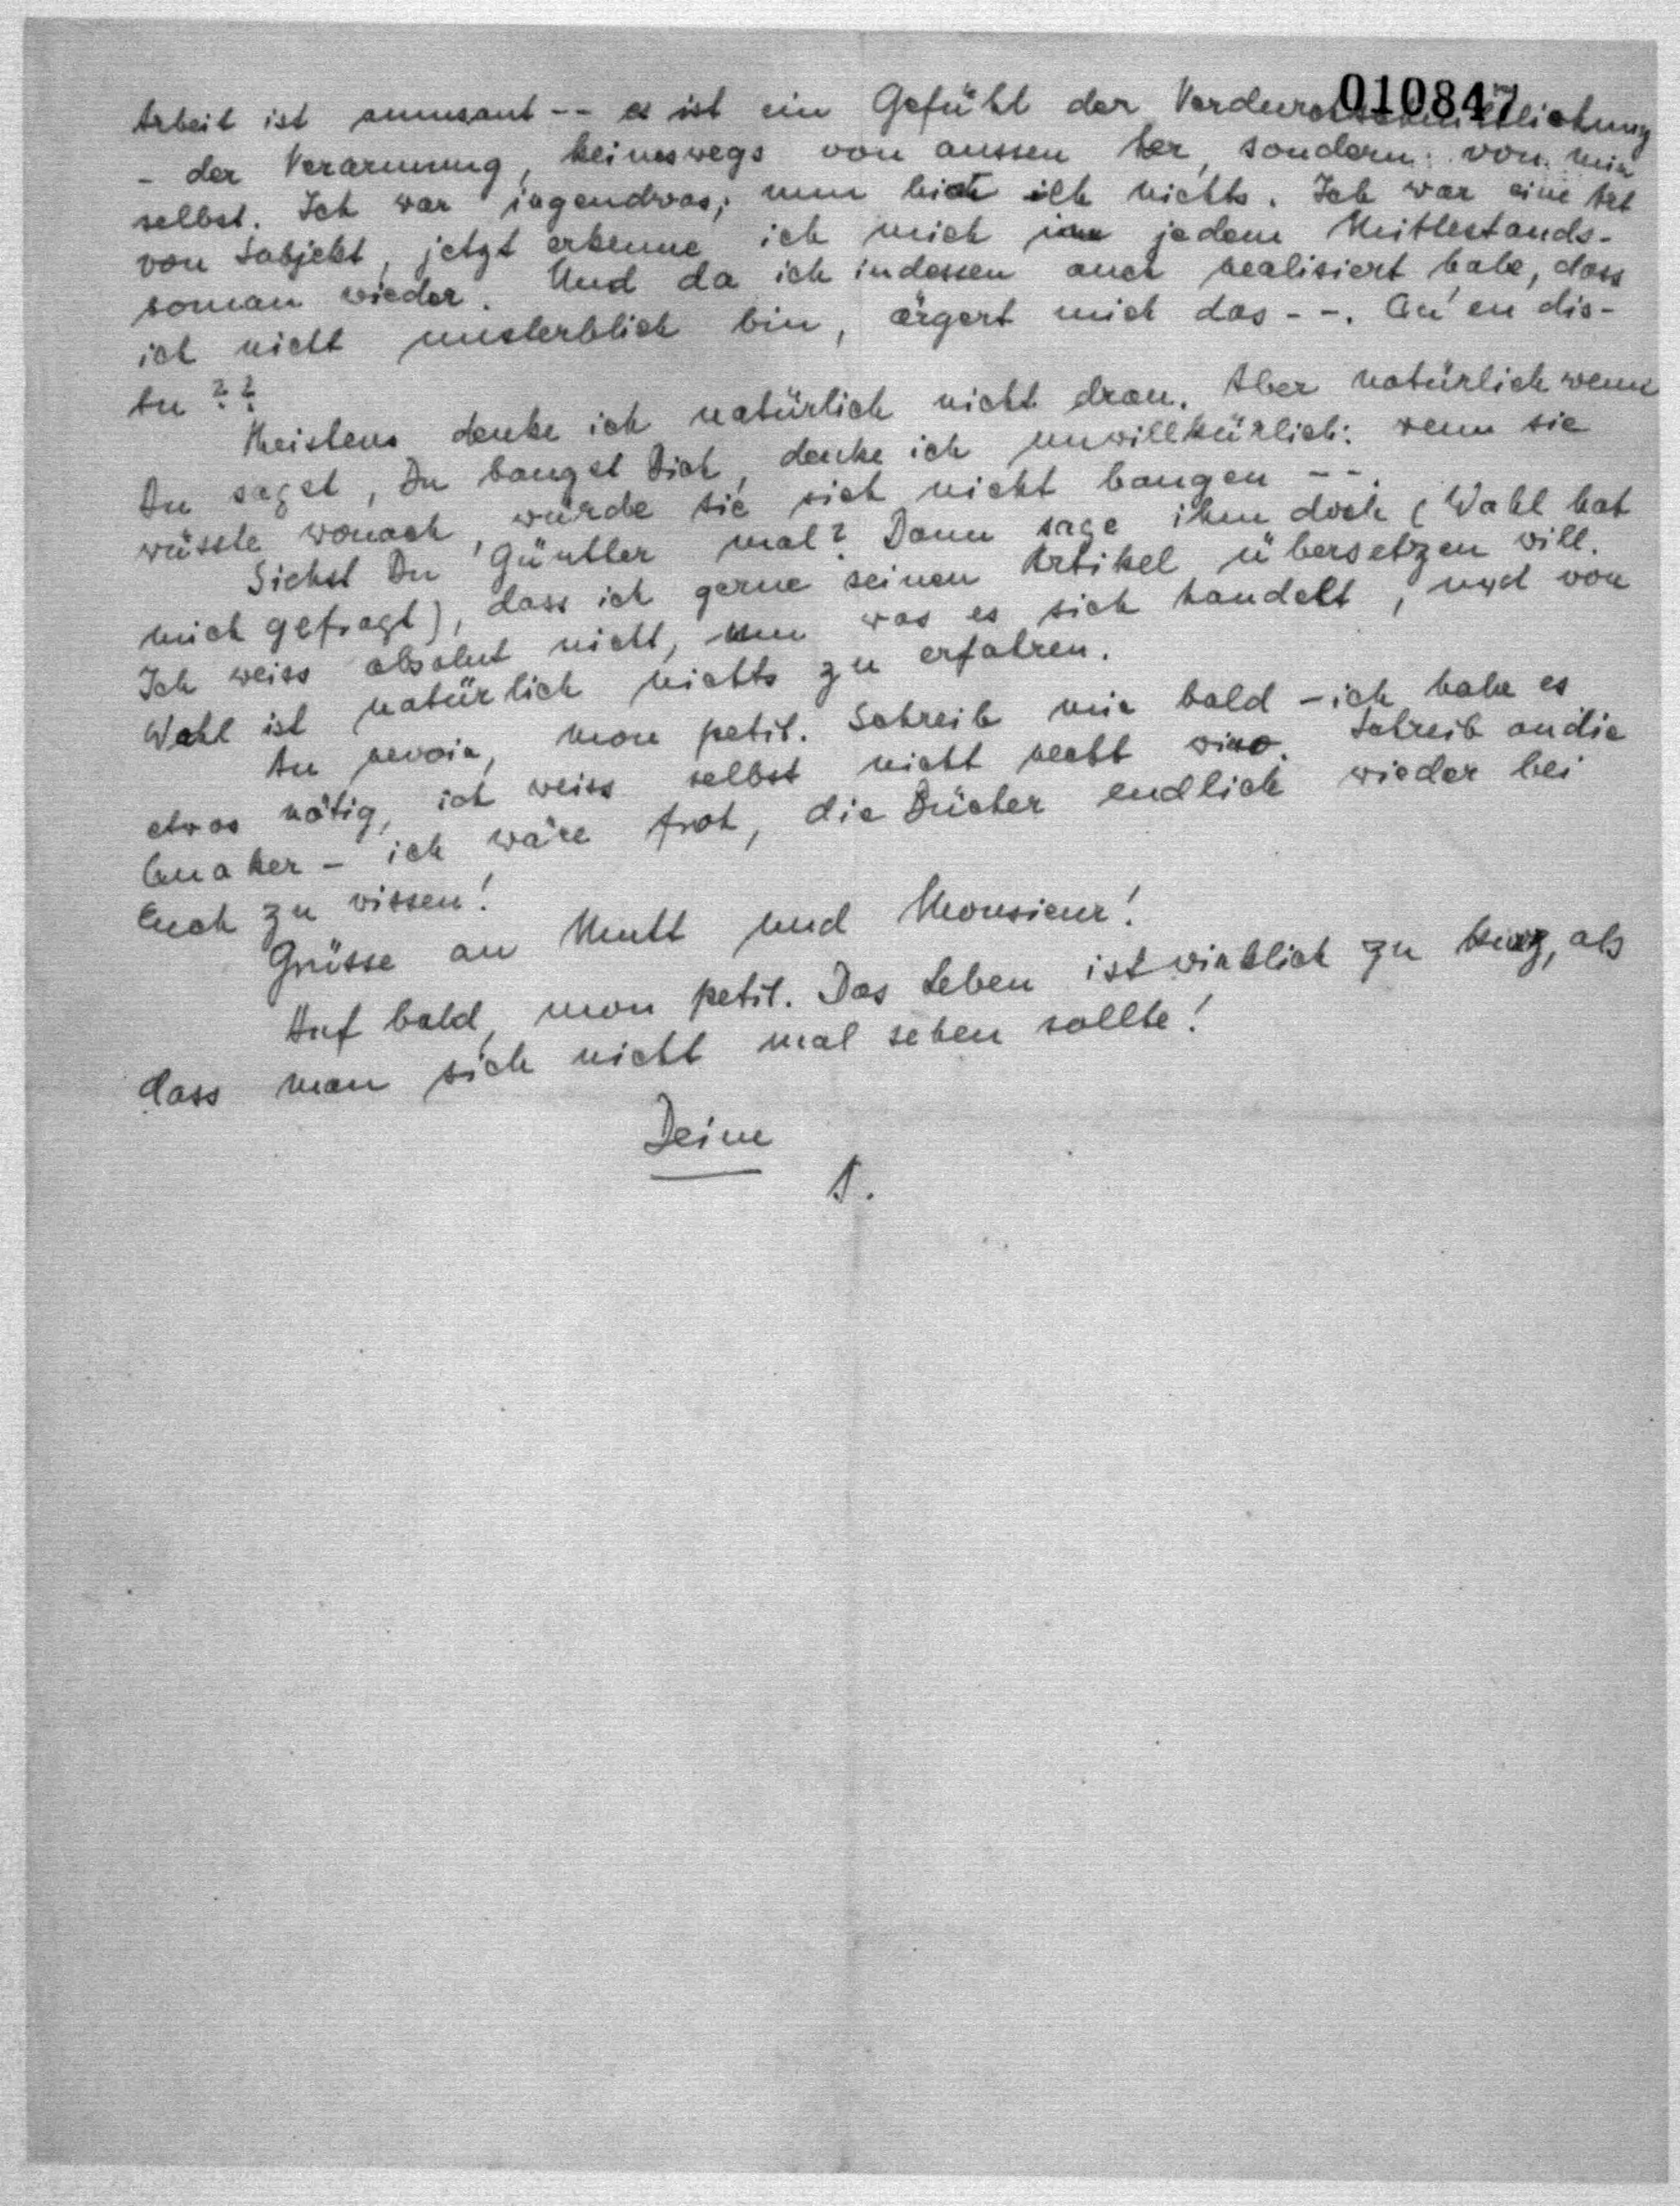 010847
Arbeit ist amusant -- es ist ein Gefühl der Verdurchschnittlichung
- der Verarmung, keineswegs von aussen her, sondern von mir
selbst. Ich war irgendwas; nun bin ich nichts. Ich war eine Art
von Subjekt, jetzt erkenne ich mich in jedem Mittlestands-
roman wieder. Und da ich indessen auch realisiert habe, dass
ich nicht unsterblich bin, ärgert mich das --. Qu'en dis-
tu ??
Meistens denke ich natürlich nicht dran. Aber natürlich wenn
Du sagst, Du bangst Dich, denke ich unwillkürlich: wenn sie
wüsste wonach, würde sie sich nicht bangen --.
Siehst Du Günther mal? Dann sage ihm doch (Wahl hat
mich gefragt), dass ich gerne seinen Artikel übersetzen will.
Ich weiss absolut nicht, um was es sich handelt, und von
Wahl ist natürlich nichts zu erfahren.
Au revoir, mon petit. Schreib mir bald - ich habe es
etwas nötig, ich weiss selbst nicht recht wieso. Schreib an die
Quaker - ich wäre froh, die Bücher endlich wieder bei
Euch zu wissen!
Grüsse an Mutt und Monsieur!
Auf bald, mon petit. Das Leben ist wirklich zu kurz, als
dass man sich nicht mal sehen sollte!
Deine